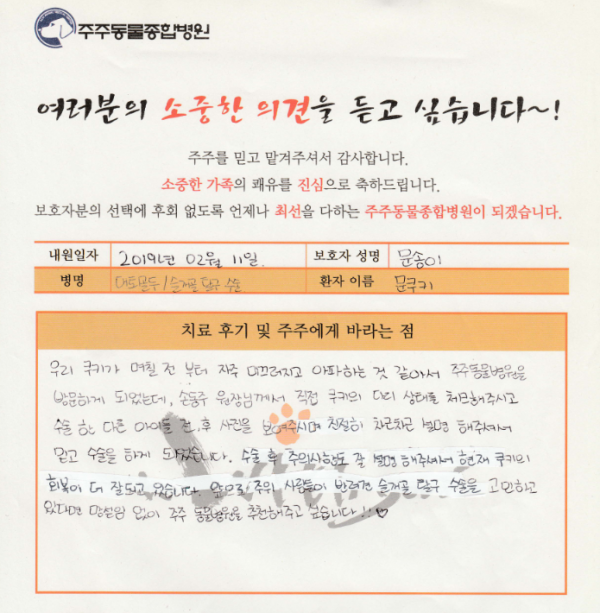 주주동물종합병원
여러분의 소중한 의견을 듣고 싶습니다~!
주주를 믿고 맡겨주셔서 감사합니다.
소중한 가족의 쾌유를 진심으로 축하드립니다.
보호자분의 선택에 후회 없도록 언제나 최선을 다하는 주주동물종합병원이 되겠습니다.
내원일자 2019년 02월 11일. 보호자 성명 문송이
병명 슬개골 탈구 수술 환자 이름 문쿠키
치료 후기 및 주주에게 바라는 점
우리 쿠키가 며칠 전 부터 자주 미끄러지고 아파하는 것 같아서 주주동물병원을
방문하게 되었는데, 손동주 원장님께서 직접 쿠키의 다리 상태를 체크해주시고
수술 한 다른 아이들 전, 후 사진을 보여주시며 친절히 차근차근 설명 해주셔서
믿고 수술을 하게 되었습니다. 수술 후 주의사항도 잘 설명 해주셔서 현재 쿠키의
회복이 더 잘되고 있습니다. 앞으로 주위 사람들이 반려견 슬개골 탈구 수술을 고민하고
있다면 망설임 없이 주주 동물병원을 추천해주고 싶습니다!!♡